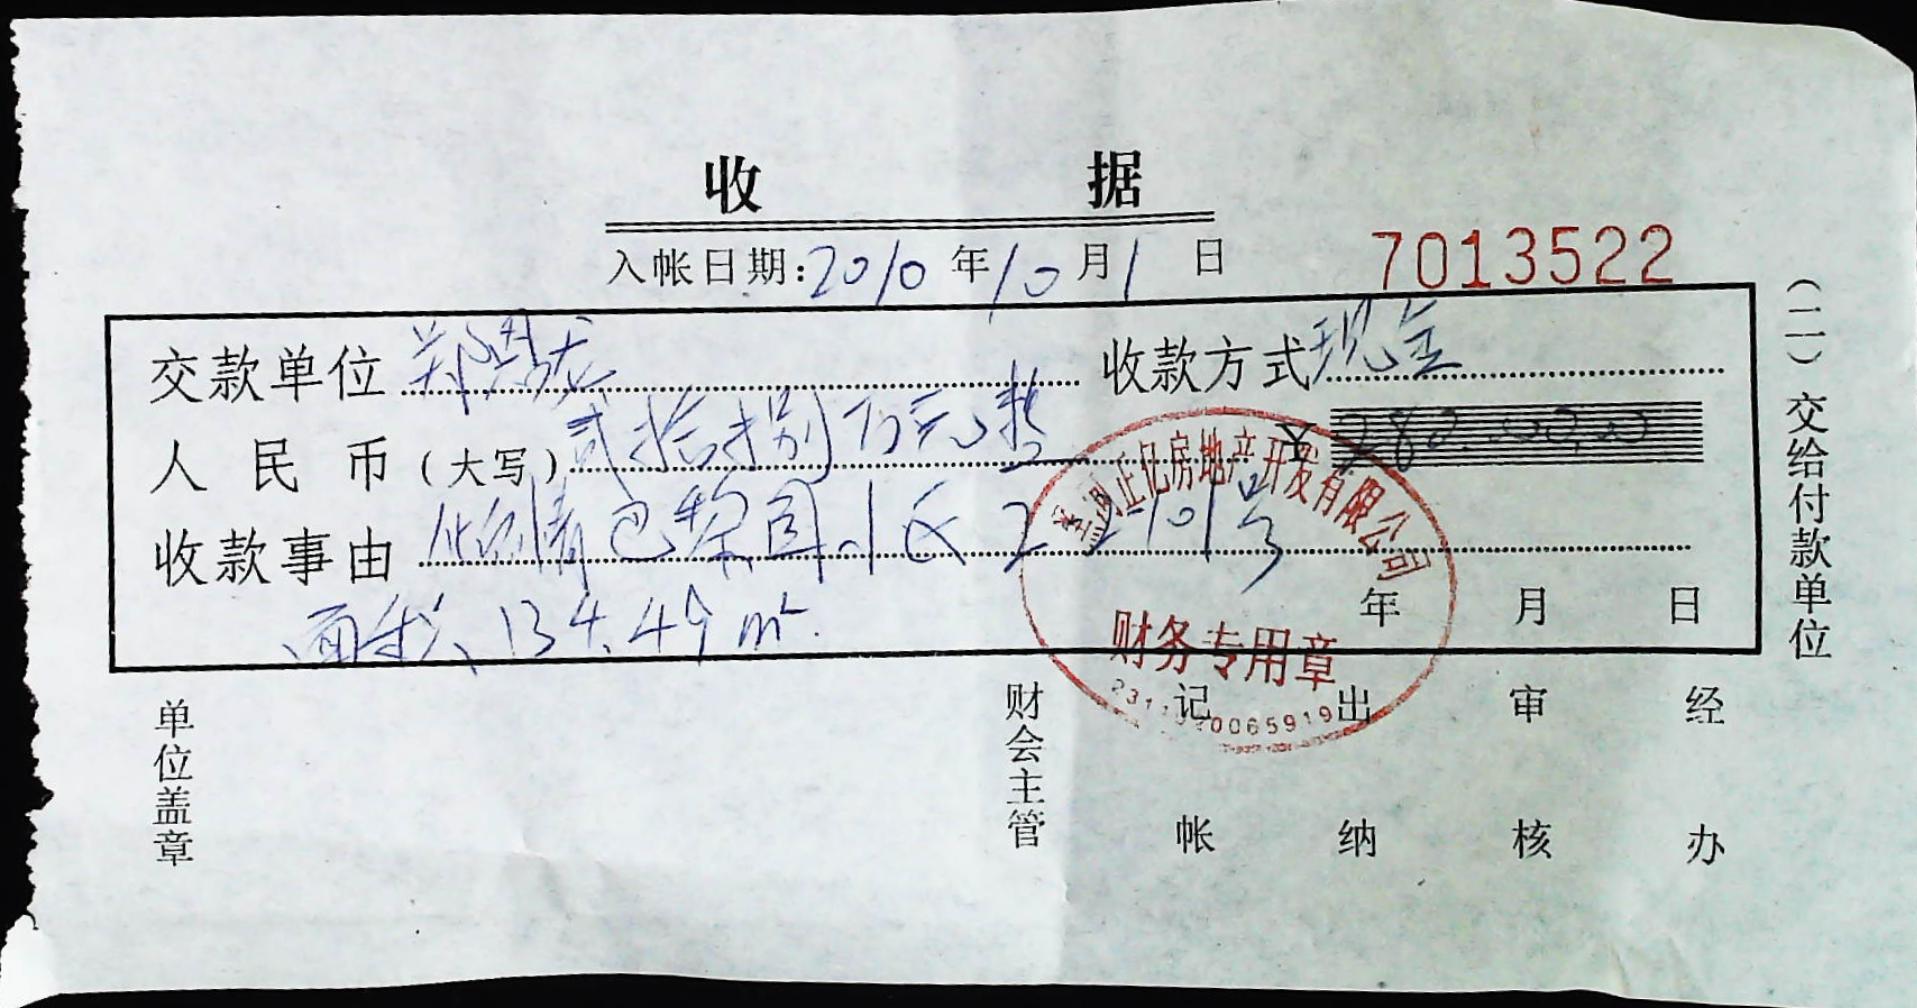 收 据
入帐日期:2010年10月1日
7013522
交款单位 郑 收款方式现金
人民币(大写)贰拾捌万元整 ¥280.000.00
收款事由 巴黎 小区2 2-101号
面积、134.49m²
年 月 日
正亿房地产开发有限公司
财务专用章
0065919
(二)交给付款单位
单位盖章
财会主管
记帐
出纳
审核
经办